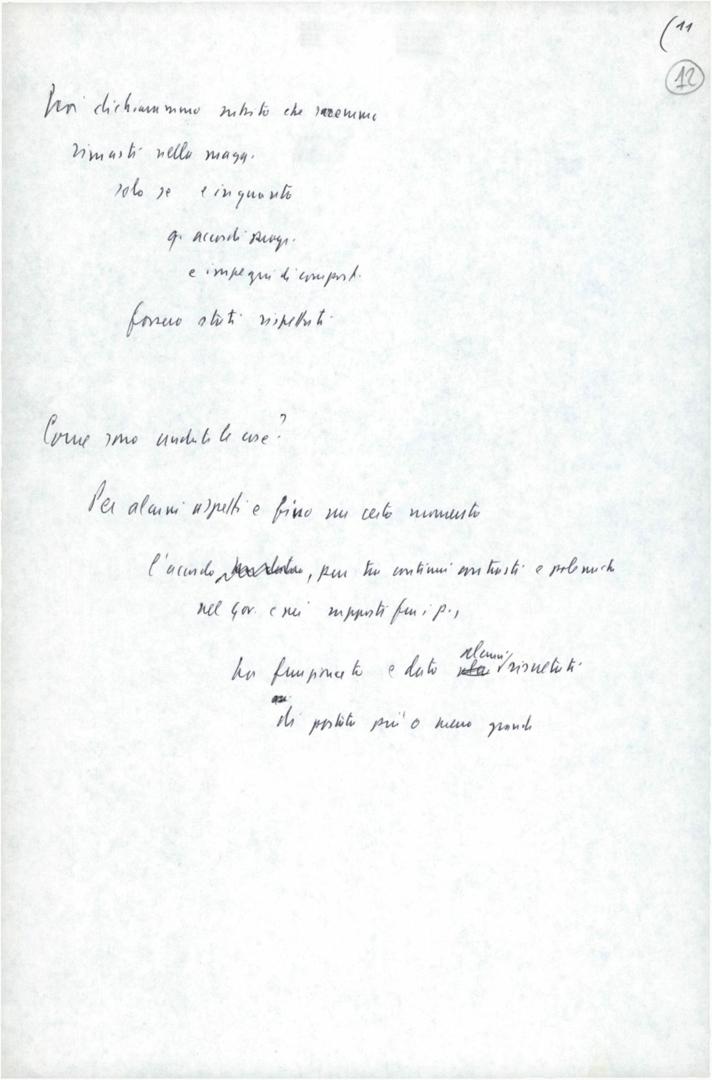 (11
12
Noi dichiarammo subito che saremmo
rimasti nella magg.
solo se e in quanto
gli accordi progr.
e impegni di comport.
fossero stati rispettati.
Come sono andate le cose?
Per alcuni aspetti e fino un certo momento
l'accordo, pur tra continui contrasti e polemiche
nel Gov. e nei rapporti fra i p.,
ha funzionato e dato alcuni risultati
di portata più o meno grande